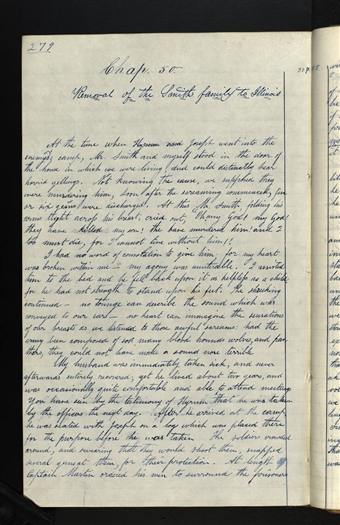 279
Chap. 50.
Removal of the Smith family to Illinois
At the time when Hyrum and Joseph went into the
enemy's camp, Mr. Smith and myself stood in the door of
the house in which we were living, and could distinctly hear
horrid yellings. Not knowing the cause, we supposed they
were murdering him. Soon after the screaming commenced, five
or six guns were discharged. At this Mr. Smith folding his
arms tight across his breast, cried out, Oh my God! my God!
they have killed my son! the have murdered him! and I
must die, for I cannot live without him!!
I had no word of consolation to give him, for my heart
was broken within me— my agony was unutterable. I assisted
him to the bed and he fell back upon it as helpless as a child
for he had not strength to stand upon his feet. The shrieking
continued— no tounge can describe the sound which was
conveyed to our ears— no heart can immagine the sensations
of our breast as we listened to those awful screams. had the
army been composed of so many blood hounds wolves, and pan
thers, they could not have made a sound more terrible
My husband was immediately taken sick, and never
afterwards entirely recovered, yet he lived about two years, and
was occasionally quite comfortable and able to attend meeting
You have seen by the testimony of Hyrum that he was taken
by the officers the next day. After he arrived at the camp
he was seated with Joseph on a log which was placed there
for the purpose before he was taken The soldiers crowded
around, and swearing that they would shoot them, snapped
several guns at them, for their protection. At length
Captain Martin ordered his men to surround the prisoners